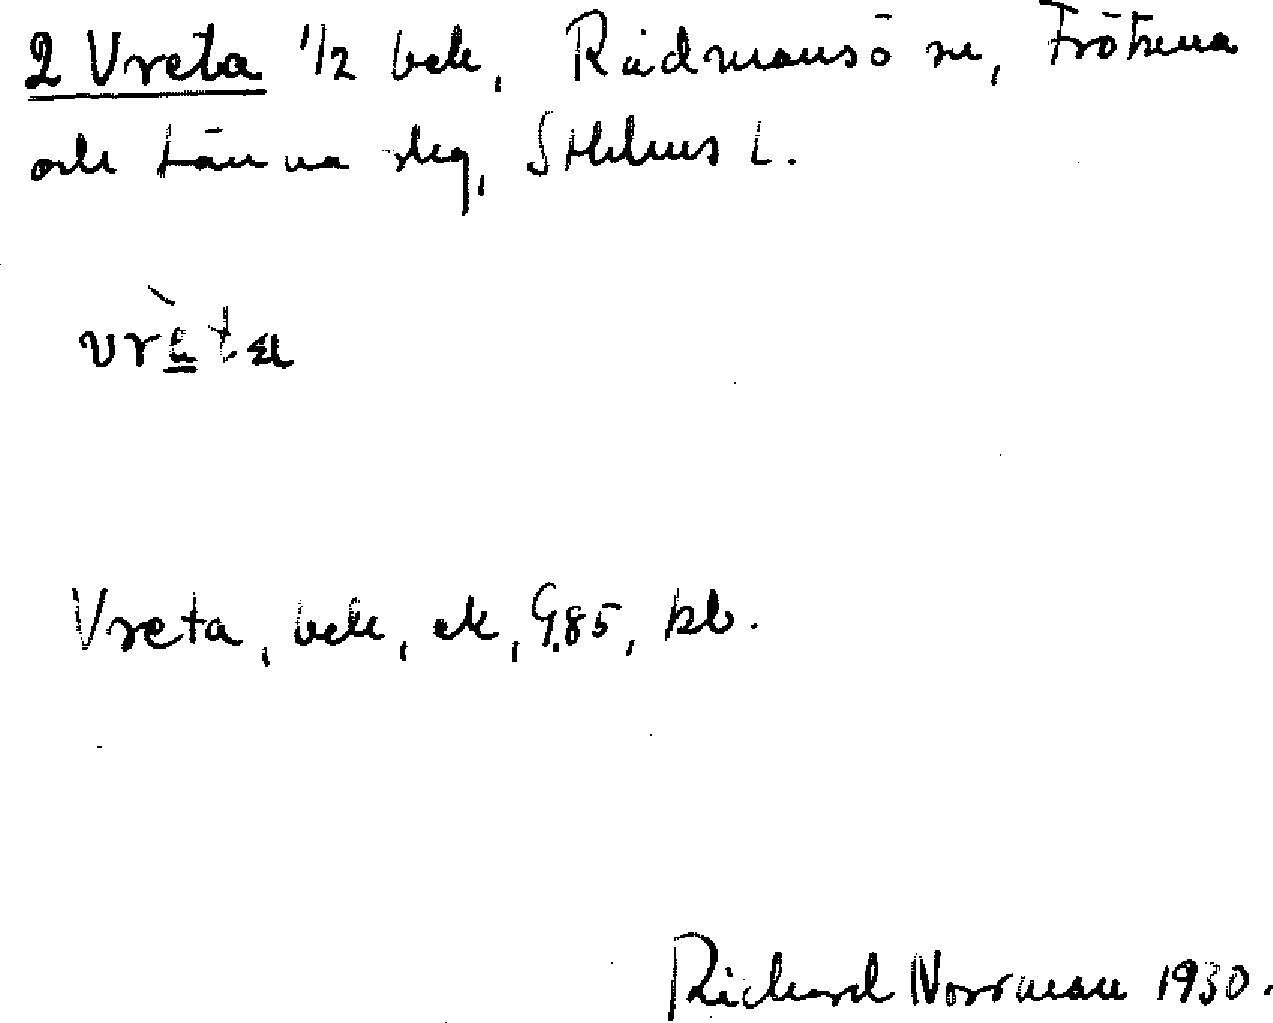 2 Vreta 1/2 bek, Rådmansö sn, Frötuna
och Länna skg, Sthlms L.
vrèta
Vreta, bek, ek, G.85, kb.
Richard Norrman 1930.